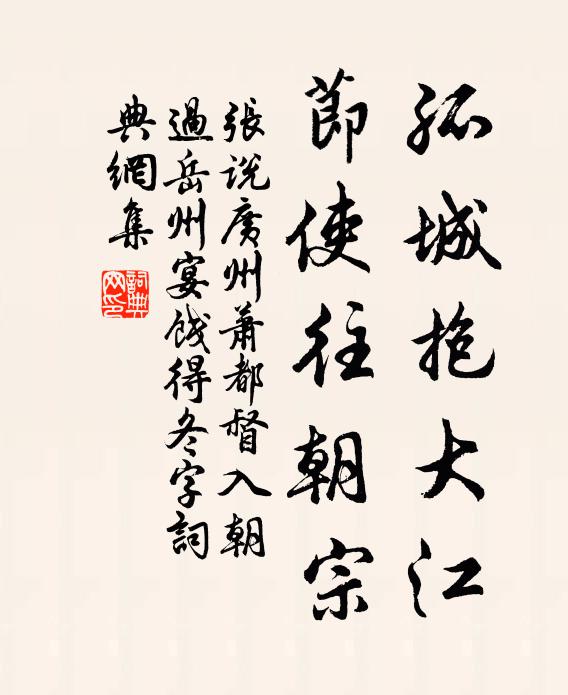 孤城抱大江
節使往朝宗
張說廣州蕭都督入朝
過岳州宴餞得冬字詞
典網集
詞典
网印